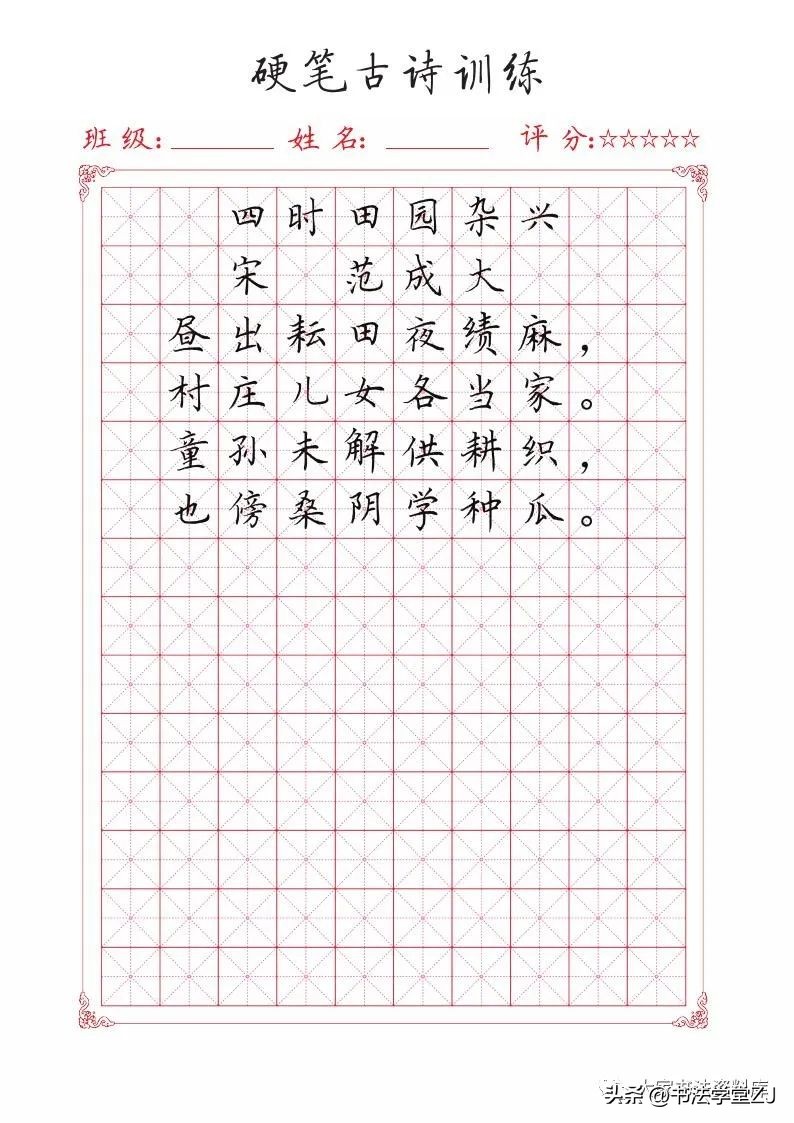 硬笔古诗训练
班级：________ 姓名：________ 评分：☆☆☆☆☆
四时田园杂兴
宋 范成大
昼出耘田夜绩麻，
村庄儿女各当家。
童孙未解供耕织，
也傍桑阴学种瓜。
大家书法资料库
头条@书法学堂ZJ